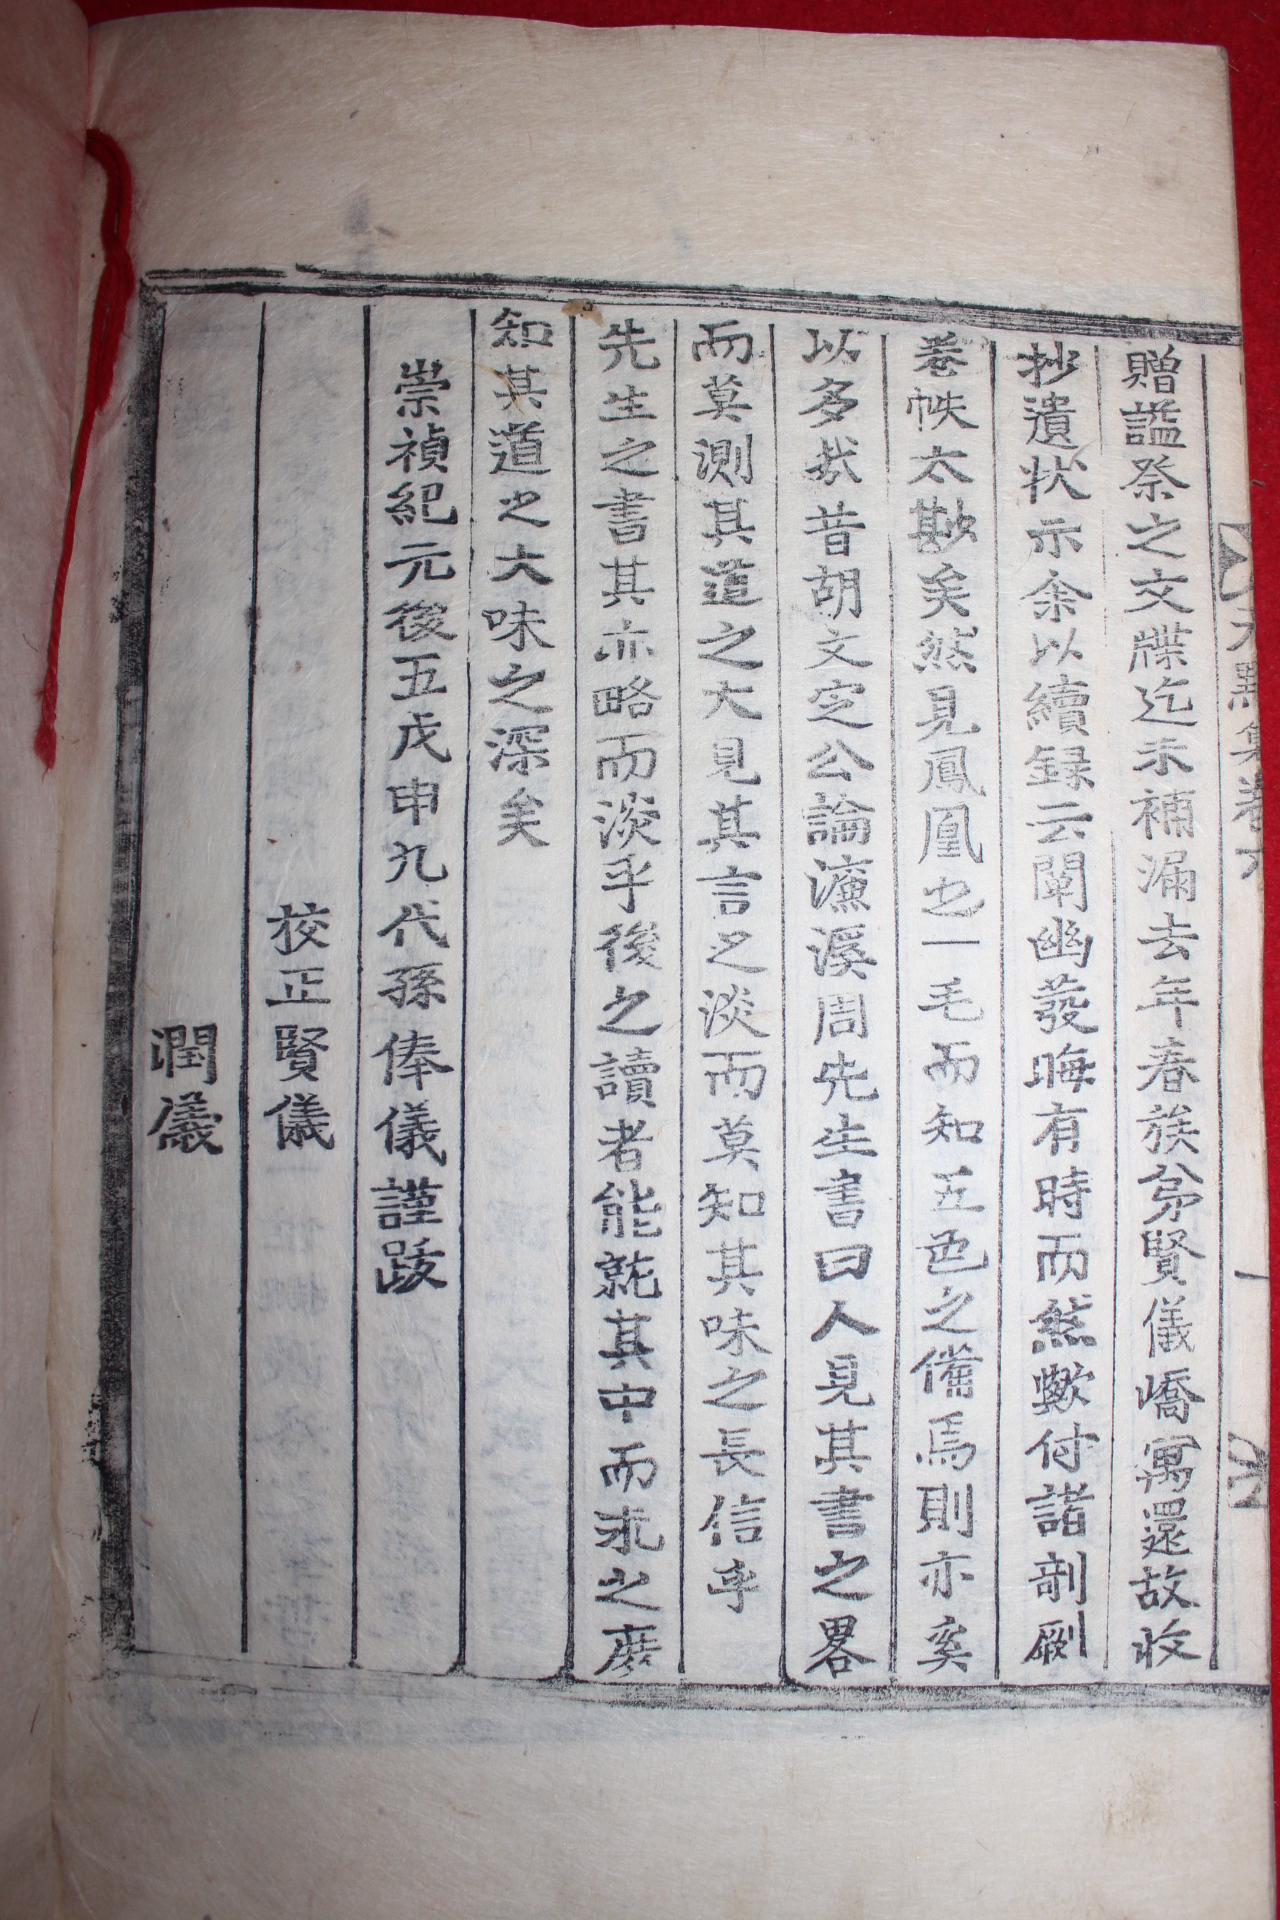 贈謚祭之文牒迄未補漏去年春族弟賢儀嶠寓還故收
抄遺狀示余以續録云闡幽發晦有時而然歟付諸剞劂
卷帙太尠矣然見鳳凰之一毛而知五色之備焉則亦奚
以多哉昔胡文定公論濂溪周先生書曰人見其書之畧
而莫測其道之大見其言之淡而莫知其味之長信乎
先生之書其亦略而淡乎後之讀者能就其中而求之庶
知其道之大味之深矣
崇禎紀元後五戊申九代孫俸儀謹跋
校正賢儀
潤儀